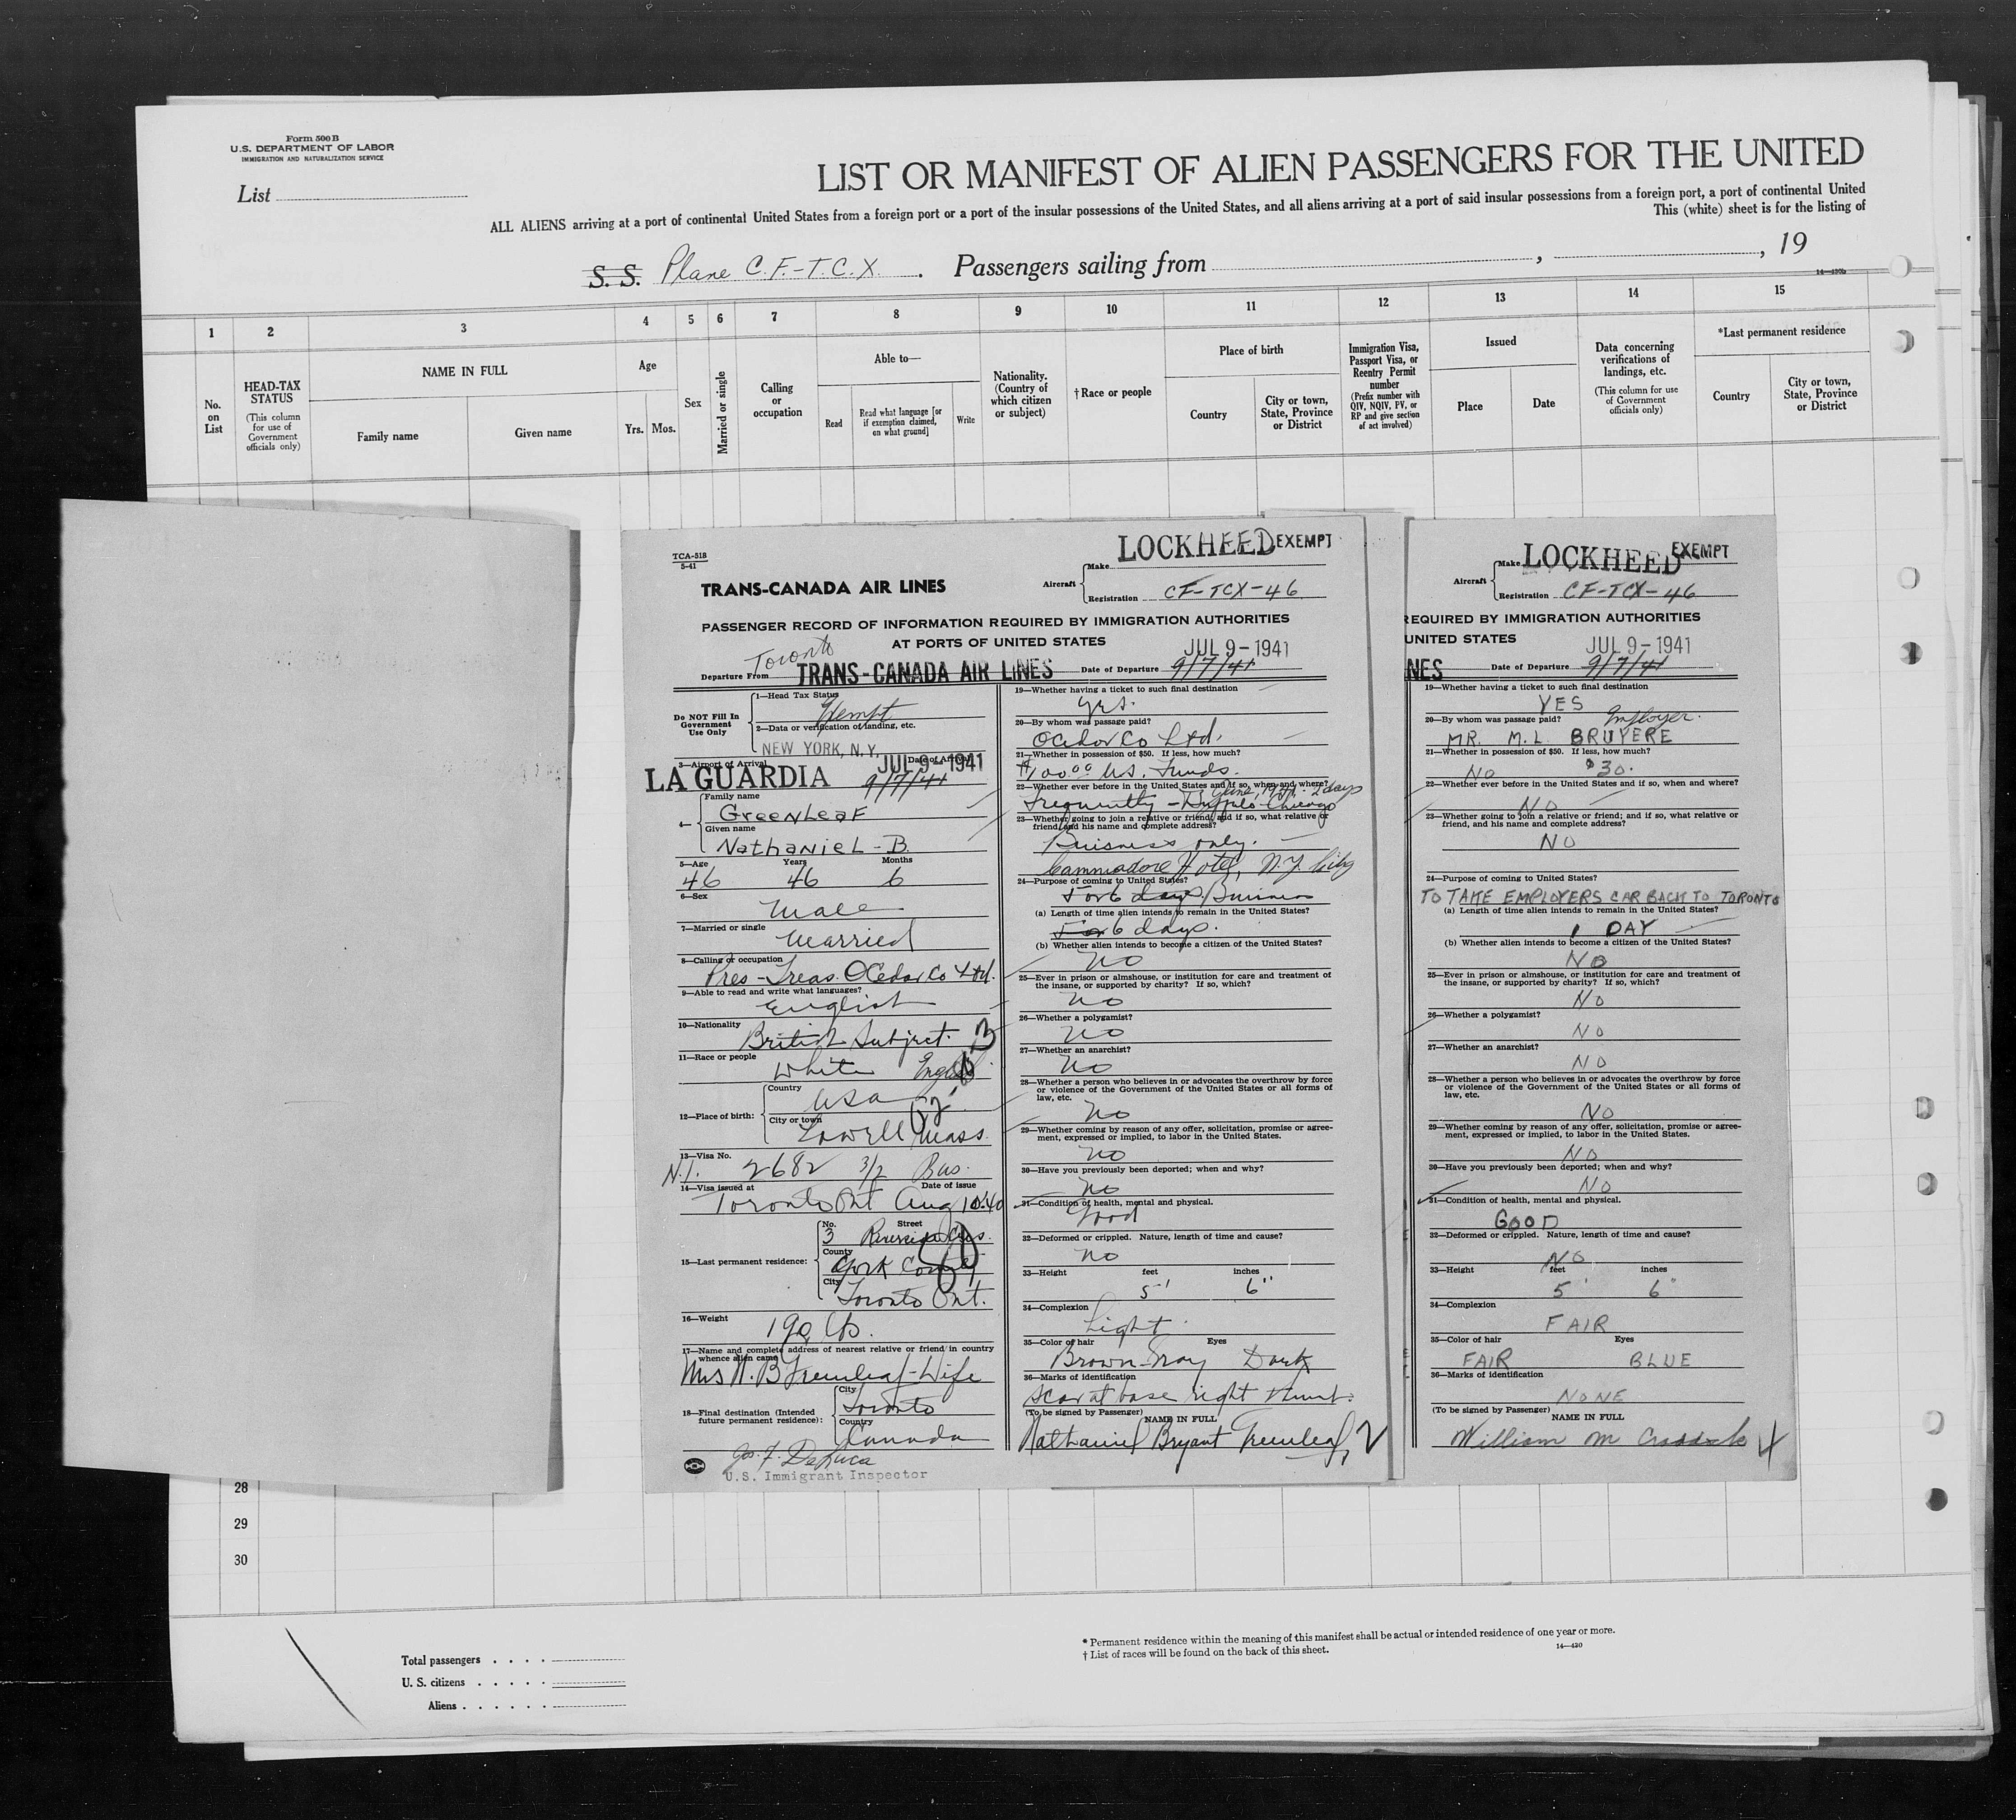 Form 500 B
U.S. DEPARTMENT OF LABOR
IMMIGRATION AND NATURALIZATION SERVICE
List
LIST OR MANIFEST OF ALIEN PASSENGERS FOR THE UNITED
ALL ALIENS arriving at a port of continental United States from a foreign port or a port of the insular possessions of the United States, and all aliens arriving at a port of said insular possessions from a foreign port, a port of continental United
This (white) sheet is for the listing of
S. S. Plane C.F.-T.C.X. Passengers sailing from , , 19
1 2 3 4 5 6 7 8 9 10 11 12 13 14 15
No. on List
HEAD-TAX STATUS
(This column for use of Government officials only)
NAME IN FULL
Family name
Given name
Age
Yrs. Mos.
Sex
Married or single
Calling or occupation
Able to—
Read
Read what language [or if exemption claimed, on what ground]
Write
Nationality. (Country of which citizen or subject)
†Race or people
Place of birth
Country
City or town, State, Province or District
Immigration Visa, Passport Visa, or Reentry Permit number
(Prefix number with QIV, NQIV, PV, or RP and give section of act involved)
Issued
Place
Date
Data concerning verifications of landings, etc.
(This column for use of Government officials only)
*Last permanent residence
Country
City or town, State, Province or District
TCA-518
5-41
TRANS-CANADA AIR LINES
LOCKHEED EXEMPT
Aircraft
Make
Registration CF-TCX-46
PASSENGER RECORD OF INFORMATION REQUIRED BY IMMIGRATION AUTHORITIES
AT PORTS OF UNITED STATES
Toronto
JUL 9-1941
Departure From TRANS-CANADA AIR LINES Date of Departure 9/7/41
Do NOT Fill In Government Use Only
1—Head Tax Status
Exempt
2—Data or verification of landing, etc.
NEW YORK, N.Y.
3—Airport of Arrival Date of Arrival
JUL 9-1941
LA GUARDIA 9/7/41
4— Family name
GreenLeaF
Given name
NathanieL-B.
5—Age Years Months
46 46 6
6—Sex
Male
7—Married or single
Married
8—Calling or occupation
Pres-Treas. OCedar Co Ltd.
9—Able to read and write what languages?
English
10—Nationality
British Subject.
11—Race or people
White
12—Place of birth:
Country
USA
City or town
Lowell Mass.
13—Visa No.
N.I. 2682 3/2 Bus.
14—Visa issued at Date of issue
Toronto Ont Aug
15—Last permanent residence:
No. Street
3 Riverside
County
York
City
Toronto Ont.
16—Weight
190 lbs.
17—Name and complete address of nearest relative or friend in country whence alien came
Mrs N. B Greenleaf-Wife
18—Final destination (Intended future permanent residence):
City
Toronto
Country
Canada
Jos. F. DeLuca
U.S. Immigrant Inspector
19—Whether having a ticket to such final destination
yes.
20—By whom was passage paid?
OCedar Co Ltd.
21—Whether in possession of $50. If less, how much?
$100.00 US. Funds.
22—Whether ever before in the United States and if so, when and where?
Frequently - Buffalo-Chicago
23—Whether going to join a relative or friend; and if so, what relative or friend, and his name and complete address?
Buisness only.
Commadore Hotel, N.Y. City
24—Purpose of coming to United States?
5 or 6 days Business
(a) Length of time alien intends to remain in the United States?
5 or 6 days.
(b) Whether alien intends to become a citizen of the United States?
no
25—Ever in prison or almshouse, or institution for care and treatment of the insane, or supported by charity? If so, which?
no
26—Whether a polygamist?
no
27—Whether an anarchist?
no
28—Whether a person who believes in or advocates the overthrow by force or violence of the Government of the United States or all forms of law, etc.
no
29—Whether coming by reason of any offer, solicitation, promise or agreement, expressed or implied, to labor in the United States.
no
30—Have you previously been deported; when and why?
no
31—Condition of health, mental and physical.
Good
32—Deformed or crippled. Nature, length of time and cause?
no
33—Height feet inches
5' 6"
34—Complexion
Light
35—Color of hair Eyes
Brown-Gray Dark
36—Marks of identification
Scar at base right thumb.
(To be signed by Passenger) NAME IN FULL
Nathaniel Bryant Greenleaf 2
LOCKHEED EXEMPT
Aircraft
Make
Registration CF-TCX-46
REQUIRED BY IMMIGRATION AUTHORITIES
UNITED STATES
JUL 9-1941
NES Date of Departure 9/7/41
19—Whether having a ticket to such final destination
YES
20—By whom was passage paid? Employer.
MR. M.L. BRUYERE
21—Whether in possession of $50. If less, how much?
NO $30.
22—Whether ever before in the United States and if so, when and where?
NO
23—Whether going to join a relative or friend; and if so, what relative or friend, and his name and complete address?
NO
24—Purpose of coming to United States?
TO TAKE EMPLOYERS CAR BACK TO TORONTO
(a) Length of time alien intends to remain in the United States?
1 DAY
(b) Whether alien intends to become a citizen of the United States?
NO
25—Ever in prison or almshouse, or institution for care and treatment of the insane, or supported by charity? If so, which?
NO
26—Whether a polygamist?
NO
27—Whether an anarchist?
NO
28—Whether a person who believes in or advocates the overthrow by force or violence of the Government of the United States or all forms of law, etc.
NO
29—Whether coming by reason of any offer, solicitation, promise or agreement, expressed or implied, to labor in the United States.
NO
30—Have you previously been deported; when and why?
NO
31—Condition of health, mental and physical.
GOOD
32—Deformed or crippled. Nature, length of time and cause?
NO
33—Height feet inches
5' 6"
34—Complexion
FAIR
35—Color of hair Eyes
FAIR BLUE
36—Marks of identification
NONE
(To be signed by Passenger) NAME IN FULL
William M Craddock 4
28
29
30
Total passengers
U. S. citizens
Aliens
* Permanent residence within the meaning of this manifest shall be actual or intended residence of one year or more.
† List of races will be found on the back of this sheet.
14—430